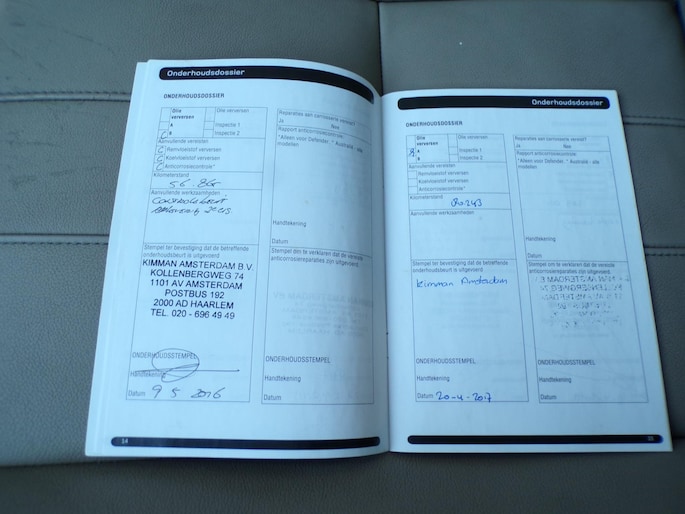 Onderhoudsdossier
ONDERHOUDSDOSSIER
Olie verversen
Olie verversen
A
Inspectie 1
B
Inspectie 2
Aanvullende vereisten
Remvloeistof verversen
Koelvloeistof verversen
Anticorrosiecontrole*
Kilometerstand
56.865
Aanvullende werkzaamheden
Stempel ter bevestiging dat de betreffende
onderhoudsbeurt is uitgevoerd
KIMMAN AMSTERDAM B.V.
KOLLENBERGWEG 74
1101 AV AMSTERDAM
POSTBUS 192
2000 AD HAARLEM
TEL. 020 - 696 49 49
ONDERHOUDSSTEMPEL
Handtekening
Datum 9 5 2016
Reparaties aan carrosserie vereist?
Ja Nee
Rapport anticorrosiecontrole:
*Alleen voor Defender. * Australië - alle
modellen
Handtekening
Datum
Stempel om te verklaren dat de vereiste
anticorrosiereparaties zijn uitgevoerd.
Handtekening
Datum
14
Onderhoudsdossier
ONDERHOUDSDOSSIER
Olie verversen
Olie verversen
A
Inspectie 1
B
Inspectie 2
Aanvullende vereisten
Remvloeistof verversen
Koelvloeistof verversen
Anticorrosiecontrole*
Kilometerstand
Aanvullende werkzaamheden
Stempel ter bevestiging dat de betreffende
onderhoudsbeurt is uitgevoerd
Kimman Amsterdam
ONDERHOUDSSTEMPEL
Handtekening
Datum 20-4-2017
Reparaties aan carrosserie vereist?
Ja Nee
Rapport anticorrosiecontrole:
*Alleen voor Defender. * Australië - alle
modellen
Handtekening
Datum
Stempel om te verklaren dat de vereiste
anticorrosiereparaties zijn uitgevoerd.
ONDERHOUDSSTEMPEL
Handtekening
Datum